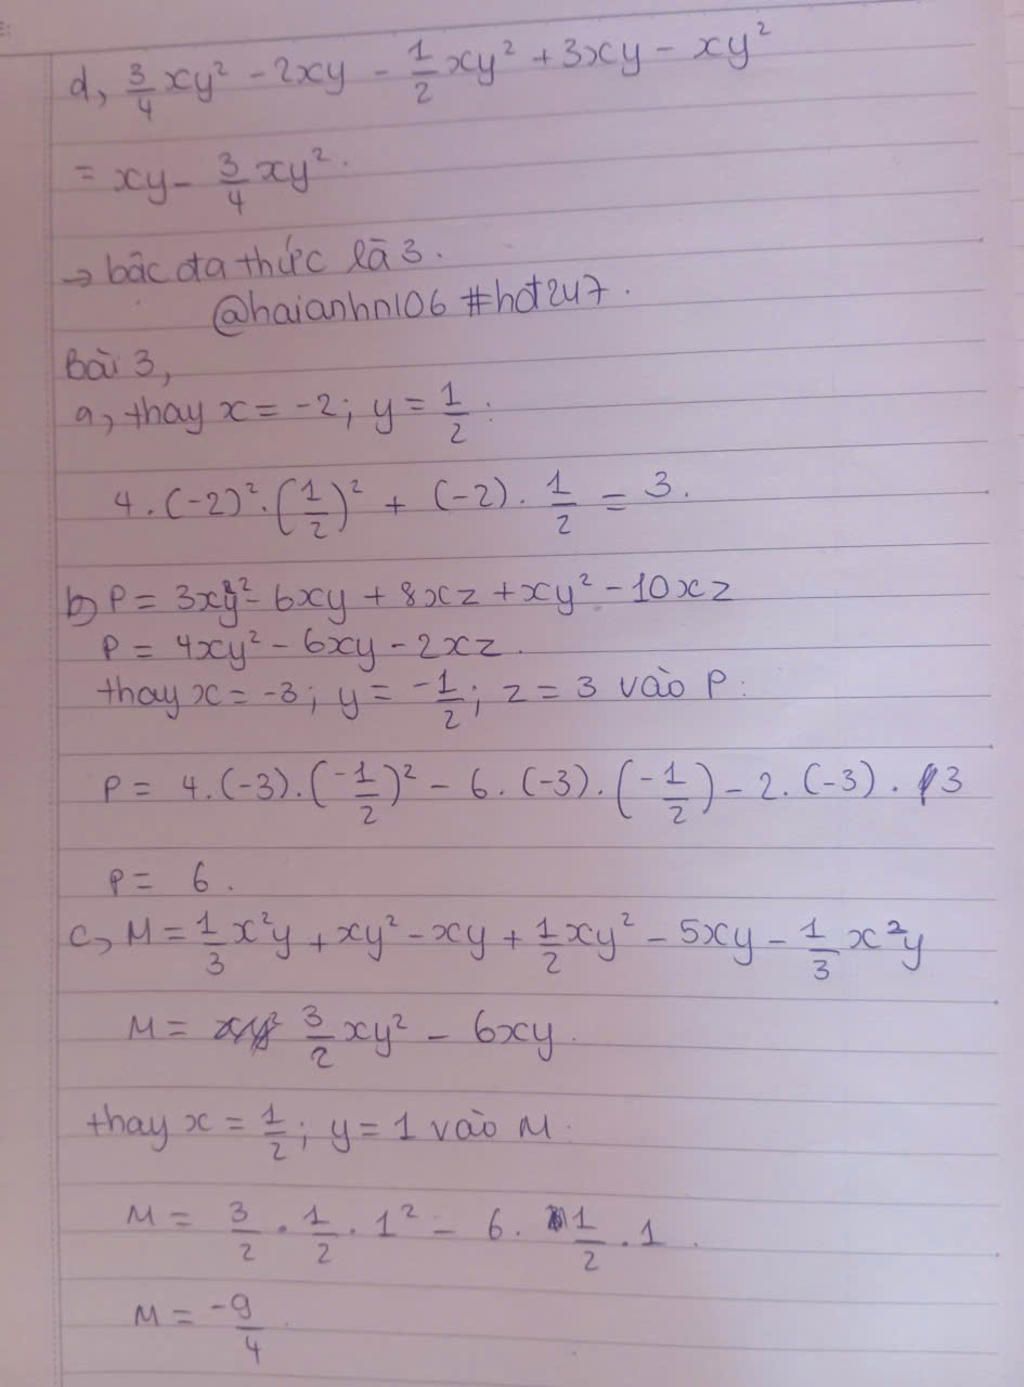 d, 3/4 xy² - 2xy - 1/2 xy² + 3xy - xy²
= xy - 3/4 xy².
→ bậc đa thức là 3.
@haianhn106 #hdt247.
Bài 3,
a, thay x = -2; y = 1/2 :
4.(-2)².(1/2)² + (-2). 1/2 = 3.
b, P = 3xy² - 6xy + 8xz + xy² - 10xz
P = 4xy² - 6xy - 2xz.
thay x = -3; y = -1/2; z = 3 vào P:
P = 4.(-3).(-1/2)² - 6.(-3).(-1/2) - 2.(-3).3
P = 6.
c, M = 1/3 x²y + xy² - xy + 1/2 xy² - 5xy - 1/3 x²y
M = 3/2 xy² - 6xy.
thay x = 1/2; y = 1 vào M.
M = 3/2 . 1/2 . 1² - 6. 1/2 . 1.
M = -9/4.